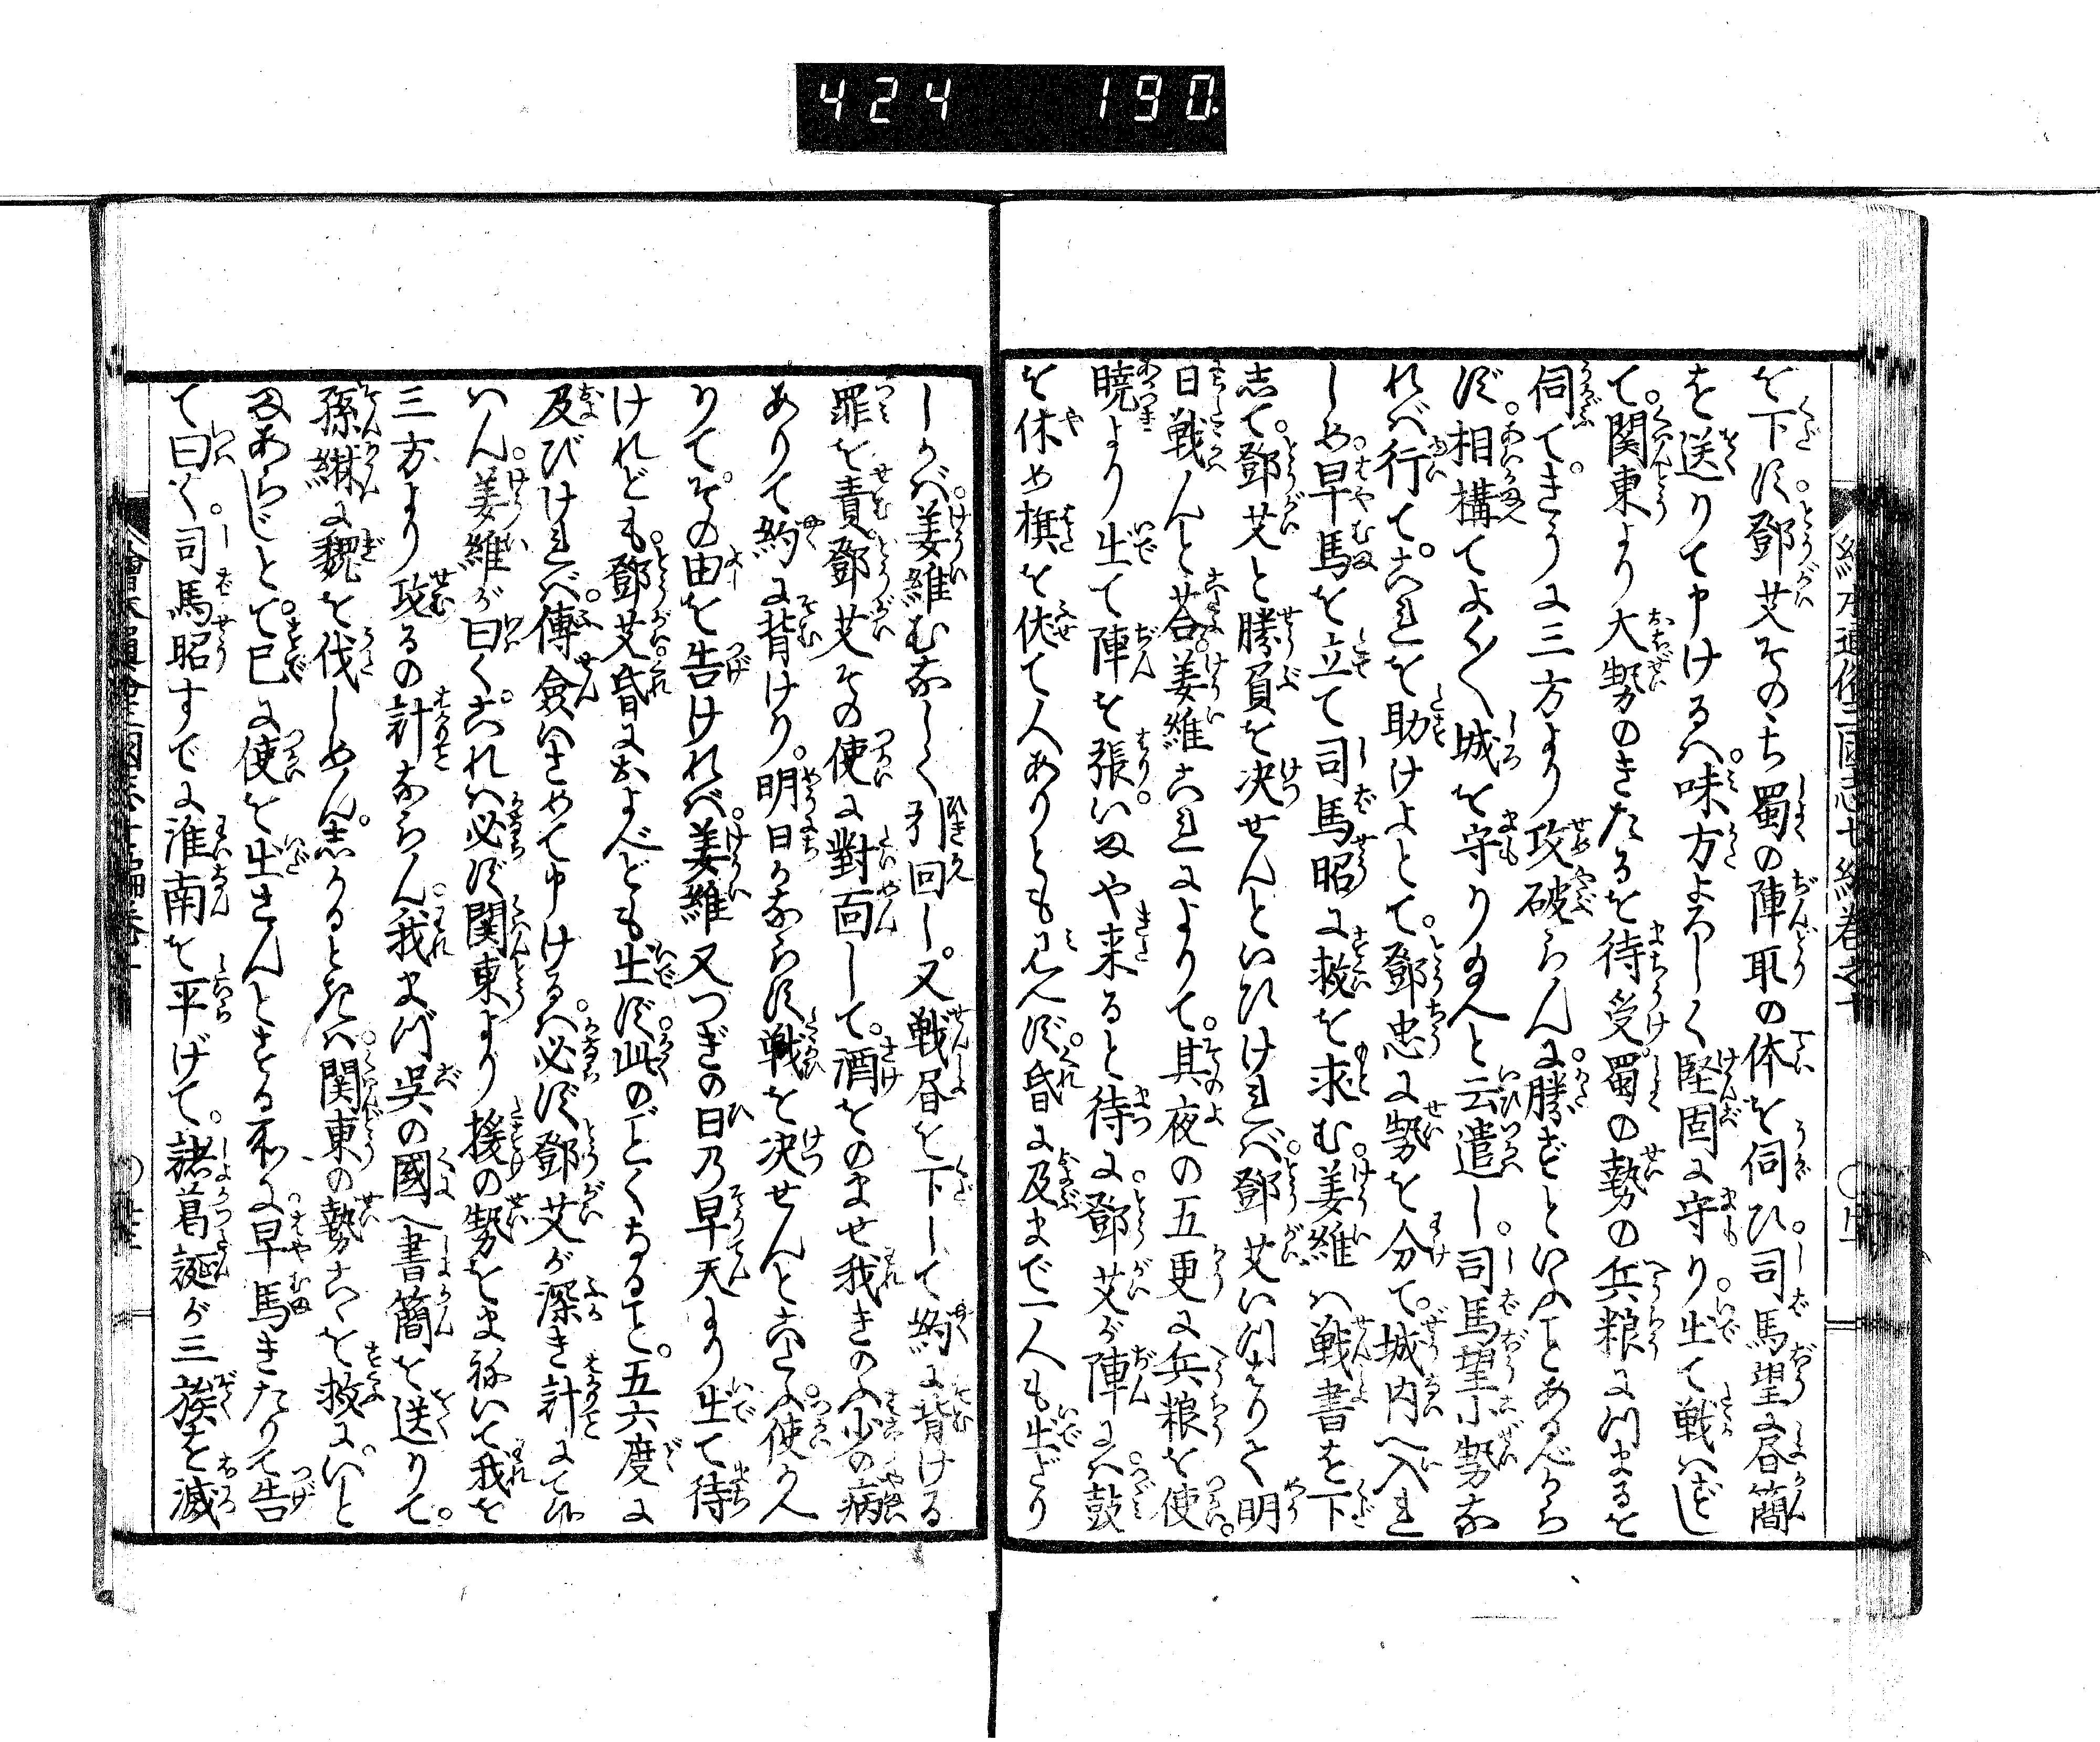 424 190
を下ず。鄧艾その ち 蜀の陣取の体を伺ひ。司馬望に書簡
を送りて申けるハ。味方よろしく堅固に守り。出て戦ハざし
て。関東より大勢のきたるを待受。蜀の勢の兵粮に つまるを
伺て。きうに三方より攻破らんに。勝ずといふことあるべから
ず。相構てよく〱城を守り給へと云遣し。司馬望小勢な
れバ行て。これを助けよとて。鄧忠に勢を分て。城内へ入れ
しめ。早馬を立て司馬昭に救を求む。姜維ハ戦書を下
して。鄧艾と勝負を決せんといひけれバ。鄧艾いつはりて明
日戦ハんと荅。姜維これによりて。其夜の五更に兵粮を使。
暁より出て陣を張いまや来ると待に。鄧艾が陣にハ鼓
を休め旗を伏て人ありとも見へず。昏に及まで一人も出ざり
しかバ。姜維むなしく引回し。又戦書を下して約に背ける
罪を責。鄧艾その使に對面して。酒をのませ我きのふ少の病
ありて約に背けり。明日かならず戦を決せんと云ふ。使かへ
りて。その由を告けれバ。姜維又つぎの日乃早天より出て待
けれども。鄧艾昏におよべども出ず。此のごとくすること。五六度に
及びけれバ。傅僉いさめて申けるハ。必ず鄧艾が深き計にて候
ハん。姜維が曰く。これハ必ず関東より援の勢をまねいて我を
三方より攻るの計ならん。我まづ呉の國へ書簡を送りて。
孫綝に魏を伐しめん。しかるときハ。関東の勢これを救に。いと
まあらじとて。已に使を出さんとする所に。早馬きたりて告
て曰く。司馬昭すでに淮南を平げて。諸葛誕が三族を滅